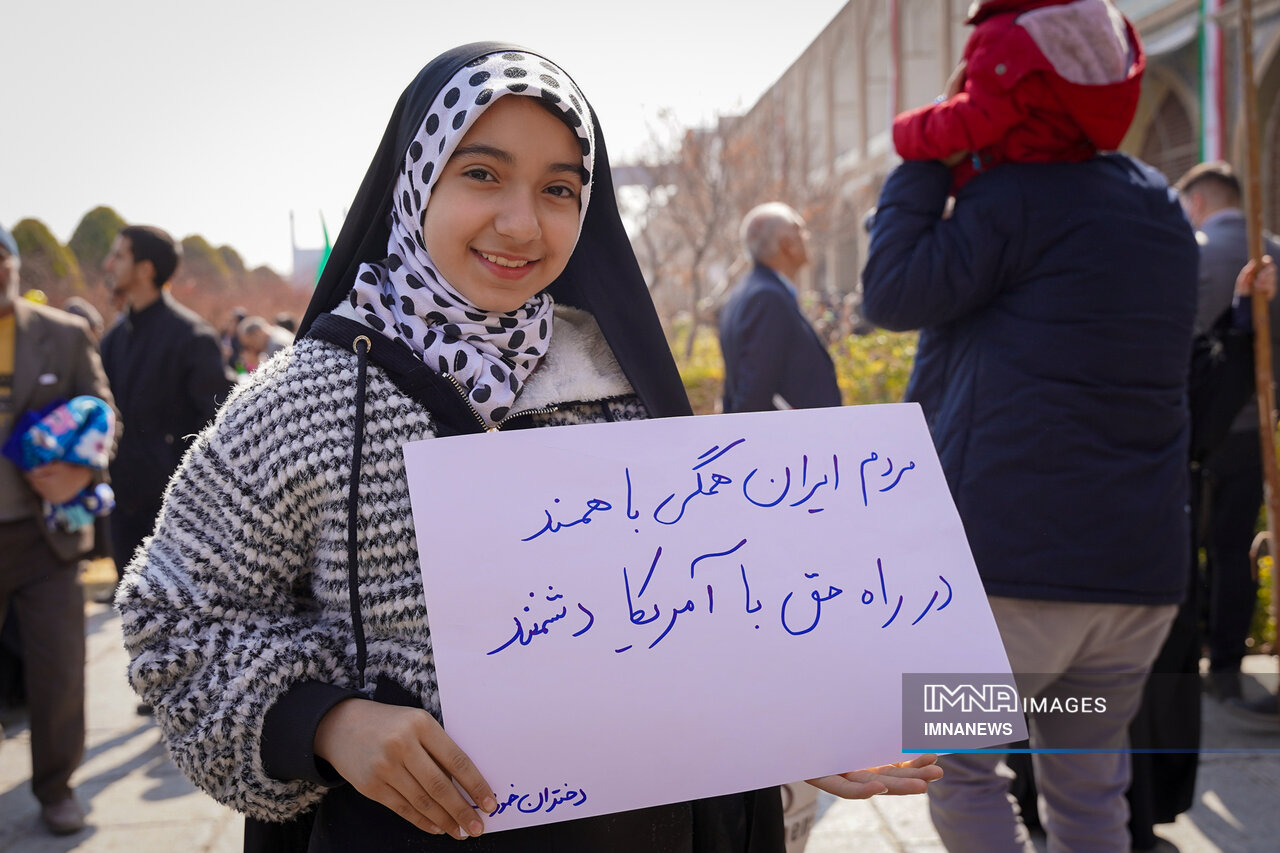 مردم ایران همگی با همند
در راه حق با آمریکا دشمنند
دختران
IMNA IMAGES
IMNANEWS